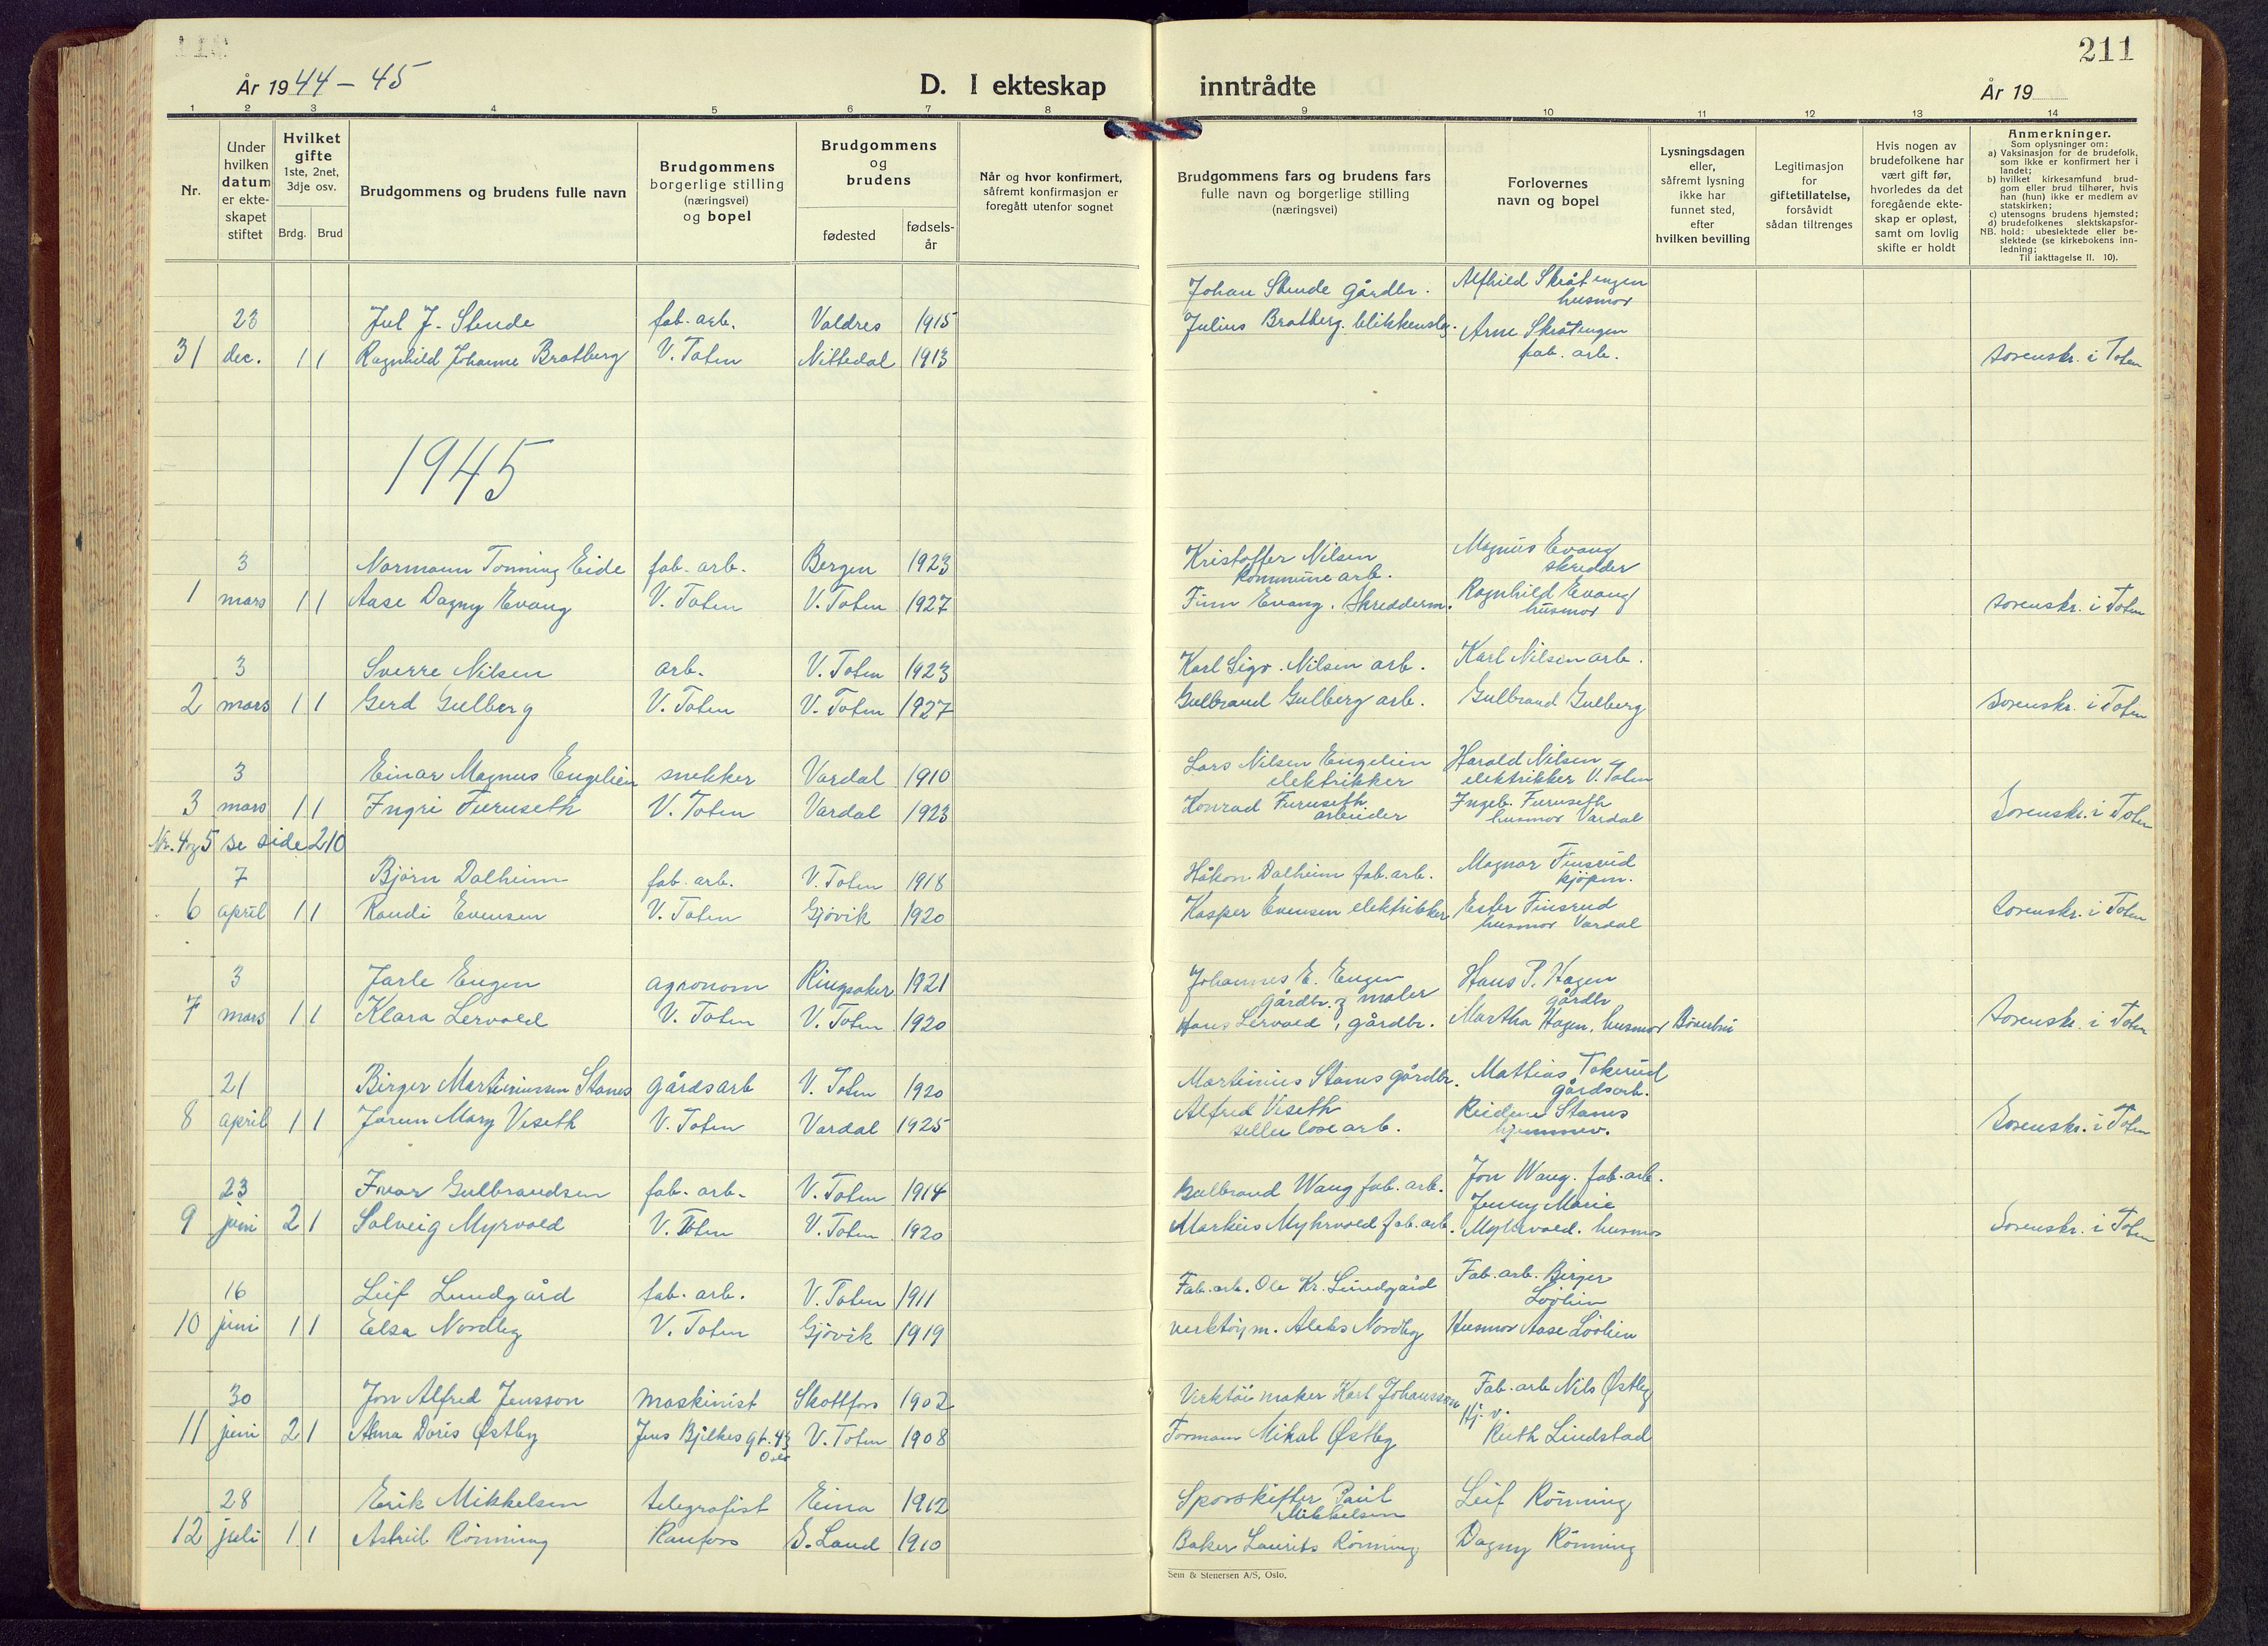 211
År 1944 – 45
D. I ekteskap inntrådte
År 19
1 2 3 4 5 6 7 8 9 10 11 12 13 14
Nr.
Under hvilken datum er ekte-skapet stiftet
Hvilket gifte 1ste, 2net, 3dje osv.
Brdg. Brud
Brudgommens og brudens fulle navn
Brudgommens borgerlige stilling (næringsvei) og bopel
Brudgommens og brudens
fødested
fødsels-år
Når og hvor konfirmert, såfremt konfirmasjon er foregått utenfor sognet
Brudgommens fars og brudens fars fulle navn og borgerlige stilling (næringsvei)
Forlovernes navn og bopel
Lysningsdagen eller, såfremt lysning ikke har funnet sted, efter hvilken bevilling
Legitimasjon for giftetillatelse, forsåvidt sådan tiltrenges
Hvis nogen av brudefolkene har vært gift før, hvorledes da det foregående ekte-skap er opløst, samt om lovlig skifte er holdt
Anmerkninger.
Som oplysninger om:
a) Vaksinasjon for de brudefolk, som ikke er konfirmert her i landet;
b) hvilket kirkesamfund brud-gom eller brud tilhører, hvis han (hun) ikke er medlem av statskirken;
c) utensogns brudens hjemsted;
d) brudefolkenes slektskapsfor-
NB. hold: ubeslektede eller be-slektede (se kirkebokens inn-ledning;
Til iakttagelse II. 10).
Johan Stende gårdbr. Alfhild Skråtengen husmor
23 Jul J. Stende fab. arb. Valdres 1915 Julius Bratberg blikkensl. Arne Skråtengen fab. arb.
31 dec. 1 1 Ragnhild Johanne Bratberg V. Toten Nittedal 1913 sorenskr. i Toten
1945
3 Normann Tonning Eide fab. arb. Bergen 1923 Kristoffer Nilsen kommunearb. Magnus Evang skredder
1 mars 1 1 Aase Dagny Evang V. Toten V. Toten 1927 Finn Evang. Skredderm. Ragnhild Evang husmor sorenskr. i Toten
3 Sverre Nilsen arb. V. Toten 1923 Karl Sigv. Nilsen arb. Karl Nilsen arb.
2 mars 1 1 Gerd Gulberg V. Toten V. Toten 1927 Gulbrand Gulberg arb. Gulbrand Gulberg sorenskr. i Toten
3 Einar Magnus Engelien snekker Vardal 1910 Lars Nilsen Engelien elektrikker Harald Nilsen elektrikker V. Toten
3 mars 1 1 Ingri Furuseth V. Toten Vardal 1923 Konrad Furuseth arbeider Ingeb. Furuseth husmor Vardal Sorenskr. i Toten
Nr. 4 og 5 se side 210
7 Bjørn Dalheim fab. arb. V. Toten 1918 Håkon Dalheim fab. arb. Magnar Finsrud kjøpm.
6 april 1 1 Randi Evensen V. Toten Gjøvik 1920 Kasper Evensen elektrikker Ester Finsrud husmor Vardal sorenskr. i Toten
3 Jarle Engen agronom Ringsaker 1921 Johannes E. Engen gårdbr. og maler Hans P. Hagen gårdbr
7 mars 1 1 Klara Lervold V. Toten V. Toten 1920 Hans Lervold, gårdbr. Martha Hagen, husmor sorenskr. i Toten
21 Birger Martiniussen Stams gårdsarb V. Toten 1920 Martinius Stams gårdbr. Mattias Tokerud gårdsarb.
8 april 1 1 Jorun Mary Veseth V. Toten Vardal 1925 Alfred Veseth arb. Stams Sorenskr. i Toten
23 Ivar Gulbrandsen fab. arb. V. Toten 1914 Gulbrand Wang fab. arb. Jon Wang. fab. arb.
9 juni 2 1 Solveig Myrvold V. Toten V. Toten 1920 Markus Myhrvold fab. arb. Jenny Marie Myhrvold. husmor Sorenskr. i Toten
16 Leif Lundgård fab. arb. V. Toten 1911 Fab. arb. Ole Kr. Lundgård Fab. arb. Birger Løvlien
10 juni 1 1 Elsa Nordby V. Toten Gjøvik 1919 verktøym. Aleks Nordby Husmor Aase Løvlien
30 Jon Alfred Jensson maskinist Skottfors 1902 Verktøimaker Karl Johansson Fab. arb Nils Østby
11 juni 2 1 Anna Doris Østby Jens Bjelkes gt. 43 Oslo V. Toten 1908 Formann Mikal Østby Hj. v. Ruth Lindstad
28 Erik Mikkelsen telegrafist Eina 1912 Sporskifter Paul Mikkelsen Leif Rønning
12 juli 1 1 Astrid Rønning Raufoss S. Land 1910 Baker Laurits Rønning Dagny Rønning
Sem & Stenersen A/S, Oslo.